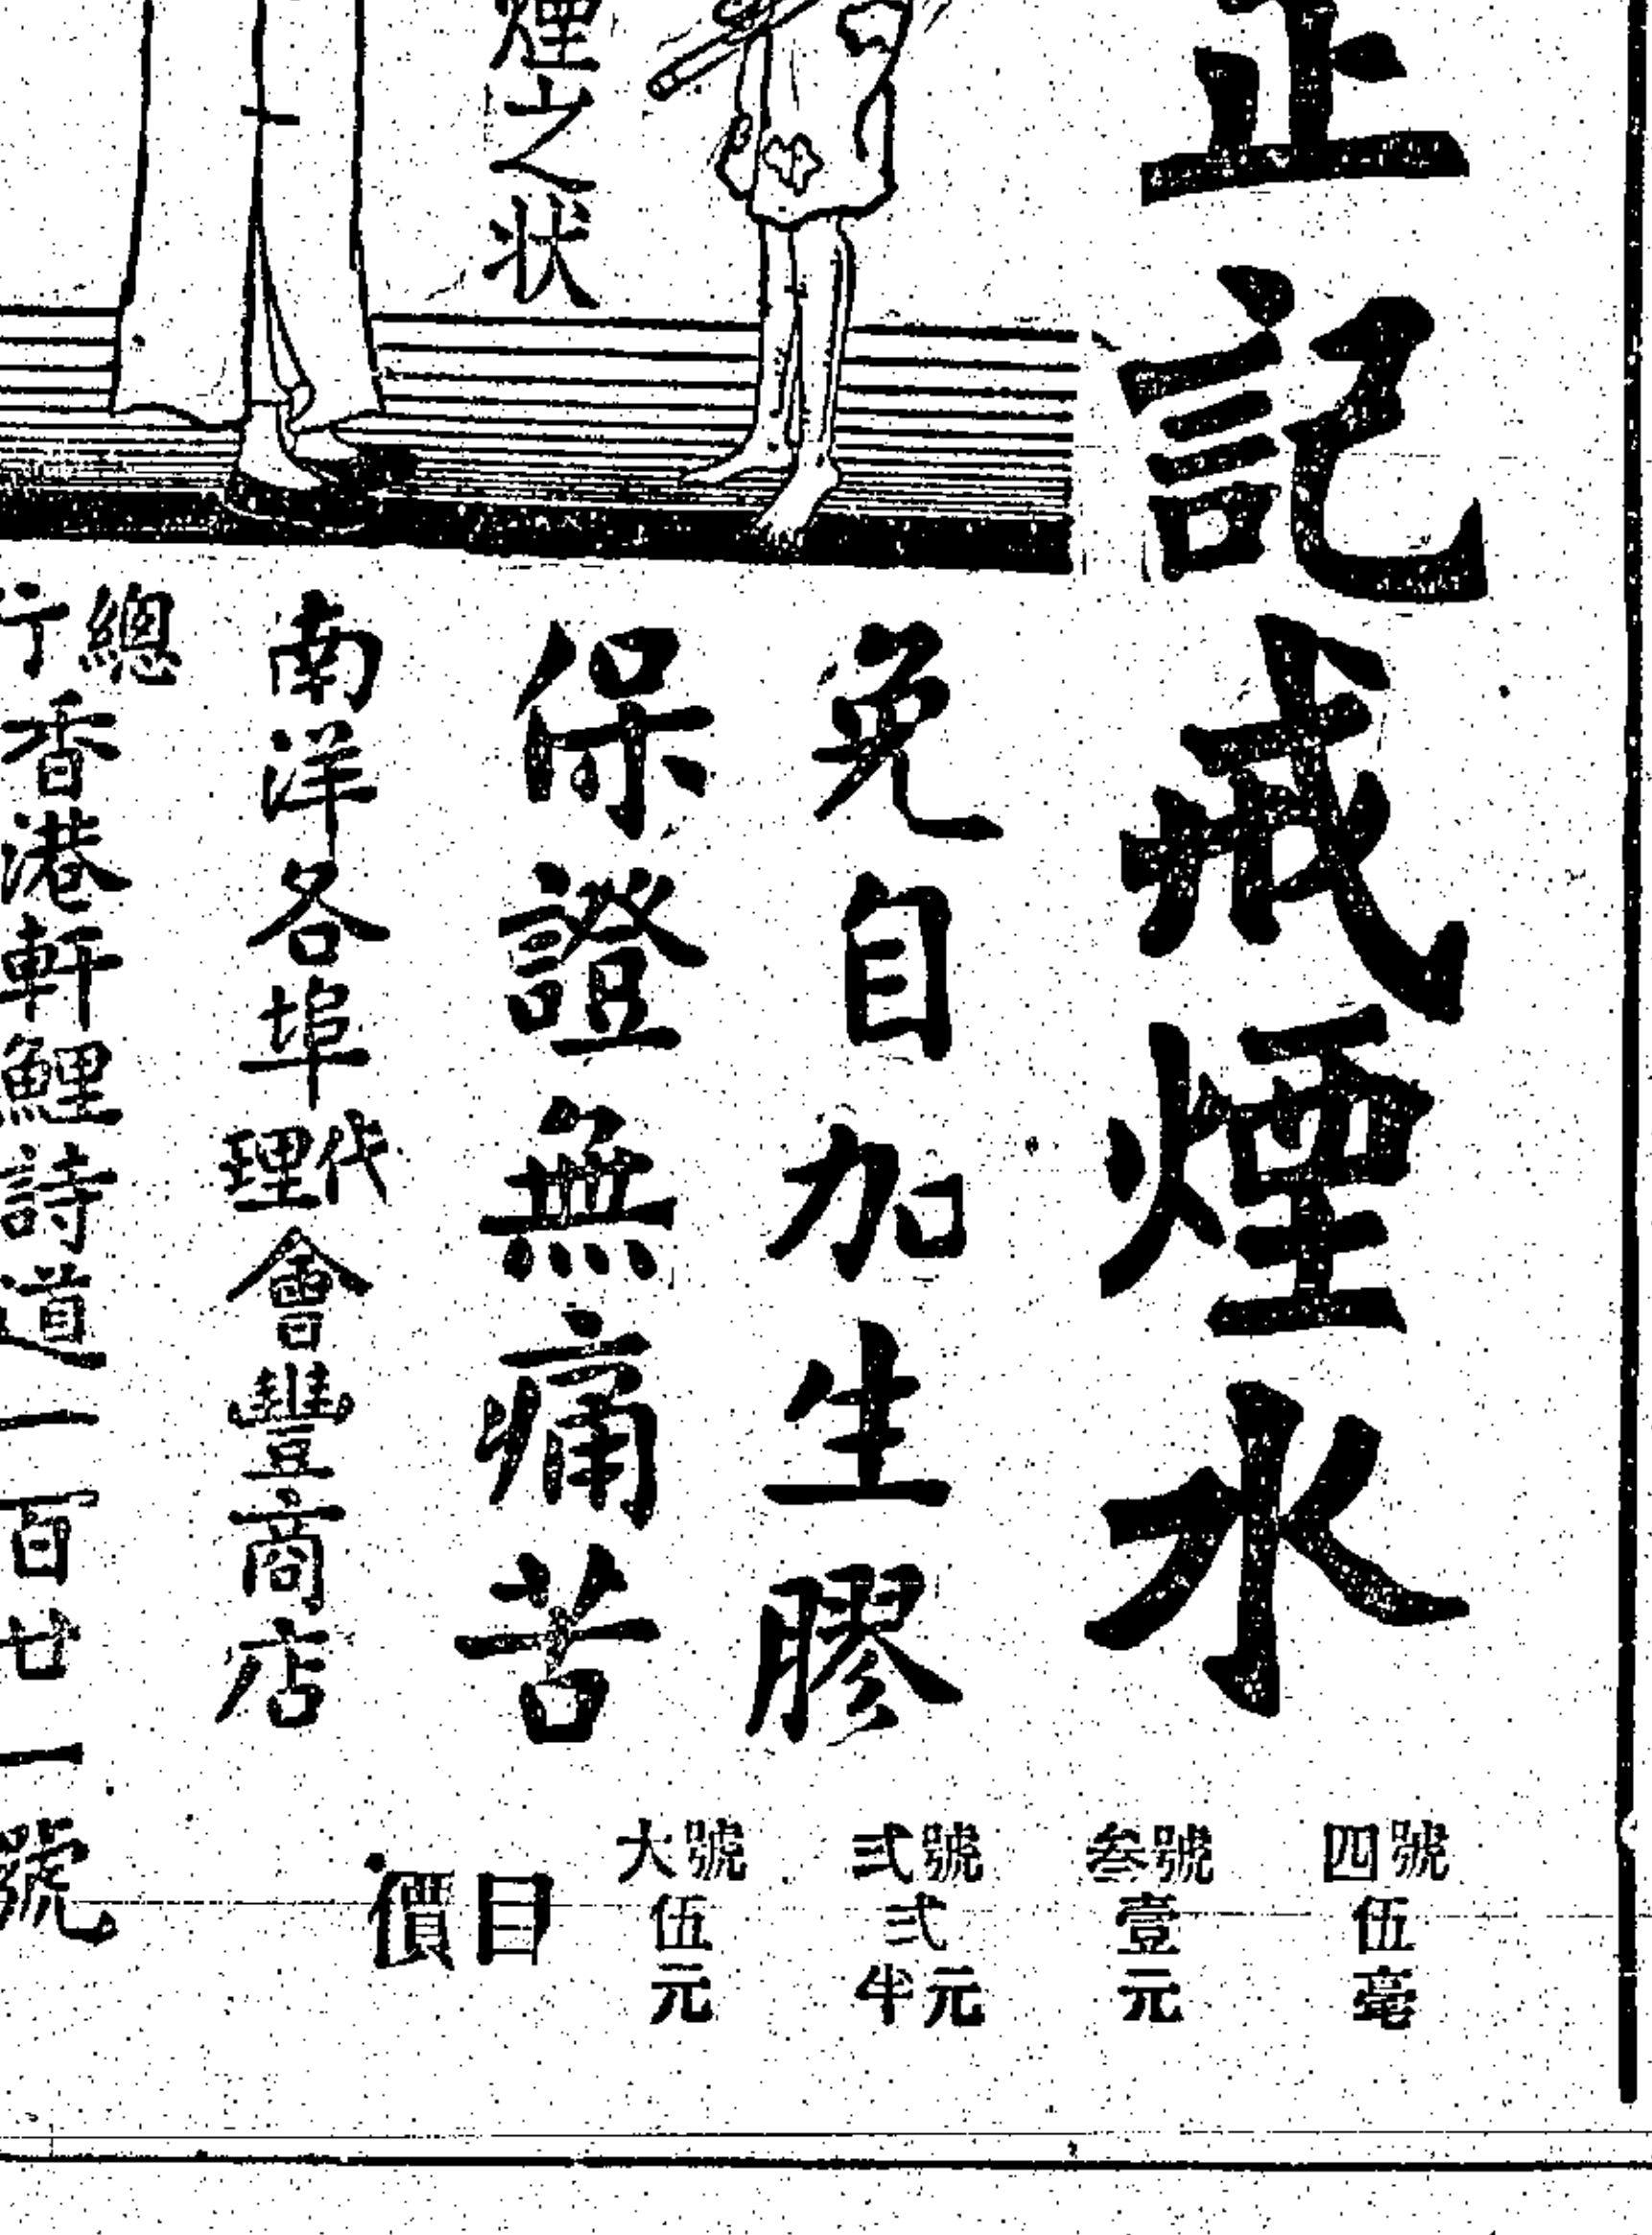 正記戒煙水
免自加生膠
保證無痛苦
煙之狀
南洋各埠代理會豐商店
總行香港軒鯉詩道一百廿一號
四號伍毫
叁號壹元
弍號弍元半
大號伍元
價目